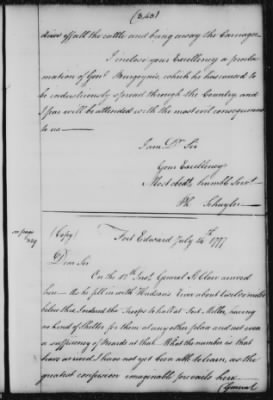 (343)
drive off all the cattle and bring away the Carriages
I inclose your Excellency a procla-
mation of Genl Burgoyne's, which he has caused to
be industriously spread through the Country and
I fear will be attended with the most evil consequences
to us —
I am Dr Sir
Your Excellency
Most obedt humble Servt
Ph Schuyler
(Copy)
Fort Edward July 14th 1777
Dear Sir
On the 12th Inst General St Clair arrived
here — the he fell in with Hudson's River about twelve miles
below that I ordered the Troops to halt at Fort Miller, having
no kind of Shelter for them at any other place and not even
a sufficiency of Boards at that. What the number is that
have arrived I have not yet been able to learn, as the
greatest confusion imaginable prevails here —
General